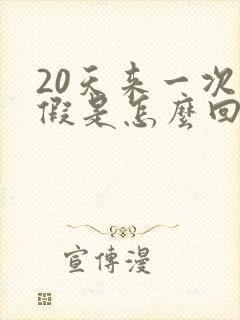 20天来一次
假是怎麼回
宣傳漫